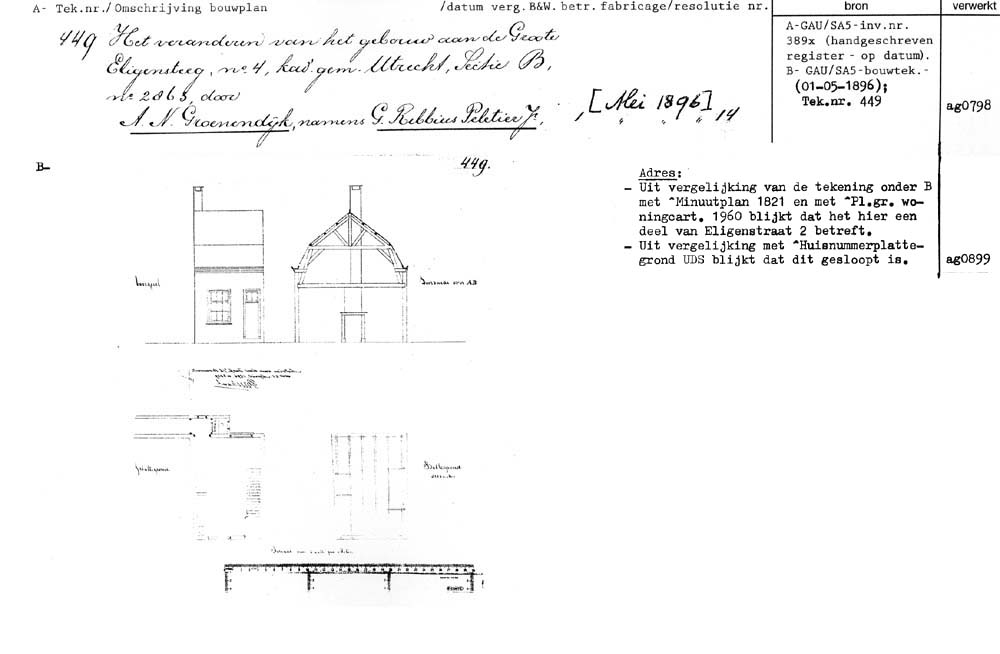 A- Tek.nr./Omschrijving bouwplan /datum verg.B&W.betr.fabricage/resolutie nr. bron verwerkt
449 Het veranderen van het gebouw aan de Groote
Eligensteeg, no. 4, kad. gem. Utrecht, Sectie B,
no. 2863, door
A. N. Groenendijk, namens G. Ribbius Peletier Jr., , [Mei 1896] , 14
A-GAU/SA5-inv.nr.
389x (handgeschreven
register - op datum).
B- GAU/SA5-bouwtek.-
(01-05-1896);
Tek.nr. 449
ag0798
B-
449.
Adres:
- Uit vergelijking van de tekening onder B
met ^Minuutplan 1821 en met ^Pl.gr. wo-
ningcart. 1960 blijkt dat het hier een
deel van Eligenstraat 2 betreft.
- Uit vergelijking met ^Huisnummerplatte-
grond UDS blijkt dat dit gesloopt is.
ag0899
Voorgevel
Doorsnede over AB